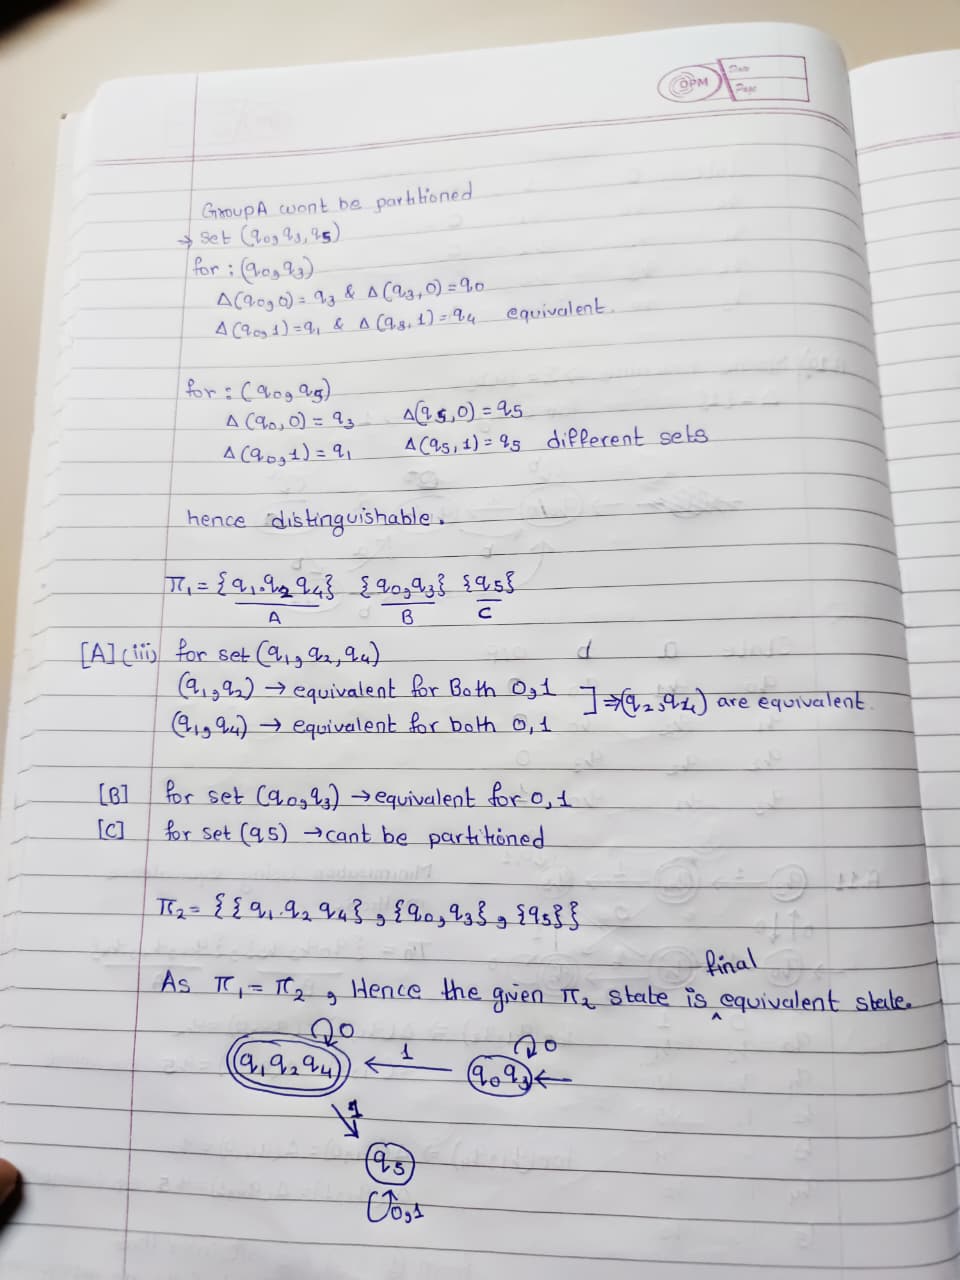 OPM
Date
Page
GroupA wont be partitioned
→ set (q0, q3, q5)
for : (q0, q3)
Δ(q0, 0) = q3 & Δ(q3, 0) = q0
Δ(q0, 1) = q1 & Δ(q3, 1) = q4 equivalent.
for : (q0, q5)
Δ(q0, 0) = q3 Δ(q5, 0) = q5
Δ(q0, 1) = q1 Δ(q5, 1) = q5 different sets
hence distinguishable.
π1 = {q1 q2 q4} {q0, q3} {q5}
A B C
[A] (iii) for set (q1, q2, q4)
(q1, q2) → equivalent for Both 0,1 ] ⇒ (q2, q4) are equivalent.
(q1, q4) → equivalent for both 0,1
[B] for set (q0, q3) → equivalent for 0,1
[C] for set (q5) → cant be partitioned
π2 = {{q1 q2 q4}, {q0, q3}, {q5}}
As π1 = π2, Hence the given π2 state is ^ final equivalent state.
0 0
q1 q2 q4 ← 1 q0 q3 ←
1
q5
0,1